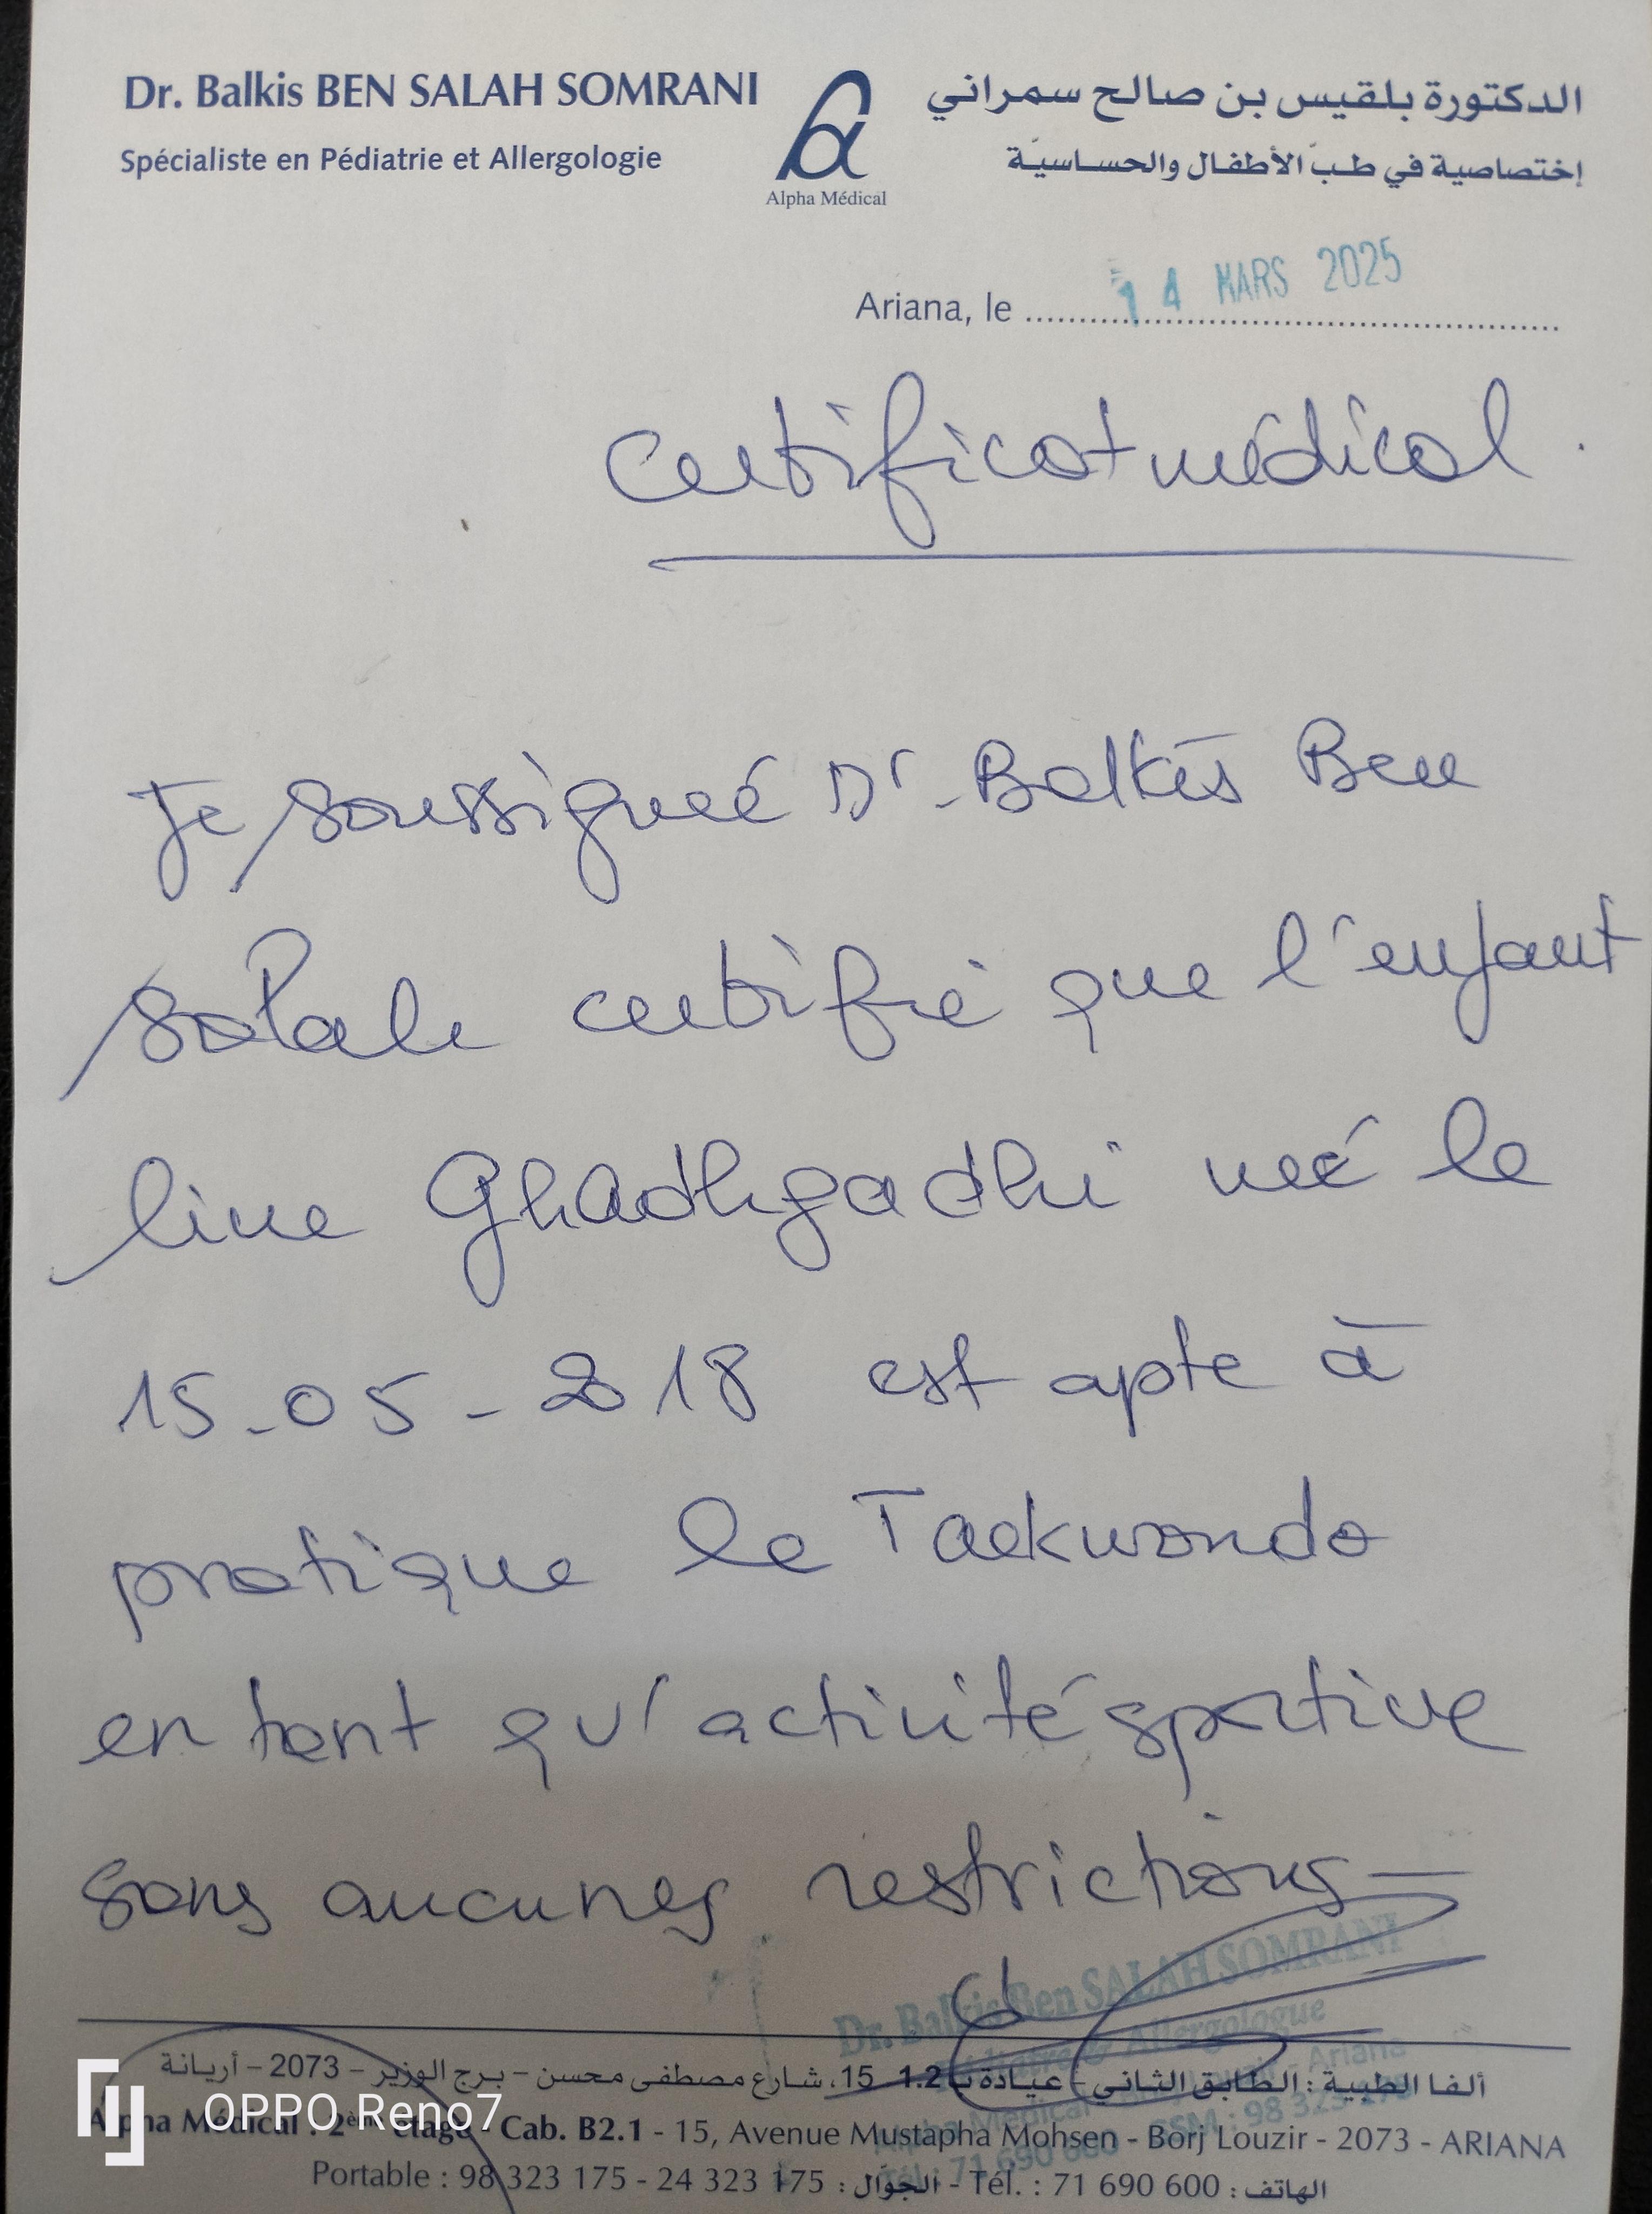 Dr. Balkis BEN SALAH SOMRANI
Spécialiste en Pédiatrie et Allergologie
Alpha Médical
الدكتورة بلقيس بن صالح سمراني
إختصاصية في طبّ الأطفال والحساسيّة
Ariana, le 14 MARS 2025
Certificat médical.
Je soussignée Dr. Balkis Ben
Salah certifie que l'enfant
line Ghadhgadhi née le
15-05-2018 est apte à
pratique le Taekwondo
en tant qu'activité sportive
sans aucunes restrictions
Dr. Balkis Ben SALAH SOMRANI
Pédiatre & Allergologue
ألفا الطبية : الطابق الثاني - عيادة ب 1.2 - 15، شارع مصطفى محسن - برج الوزير - 2073 - أريانة
Alpha Médical : 2ème étage - Cab. B2.1 - 15, Avenue Mustapha Mohsen - Borj Louzir - 2073 - ARIANA
Portable : 98 323 175 - 24 323 175 : الجوّال - Tél. : 71 690 600 : الهاتف
OPPO Reno7